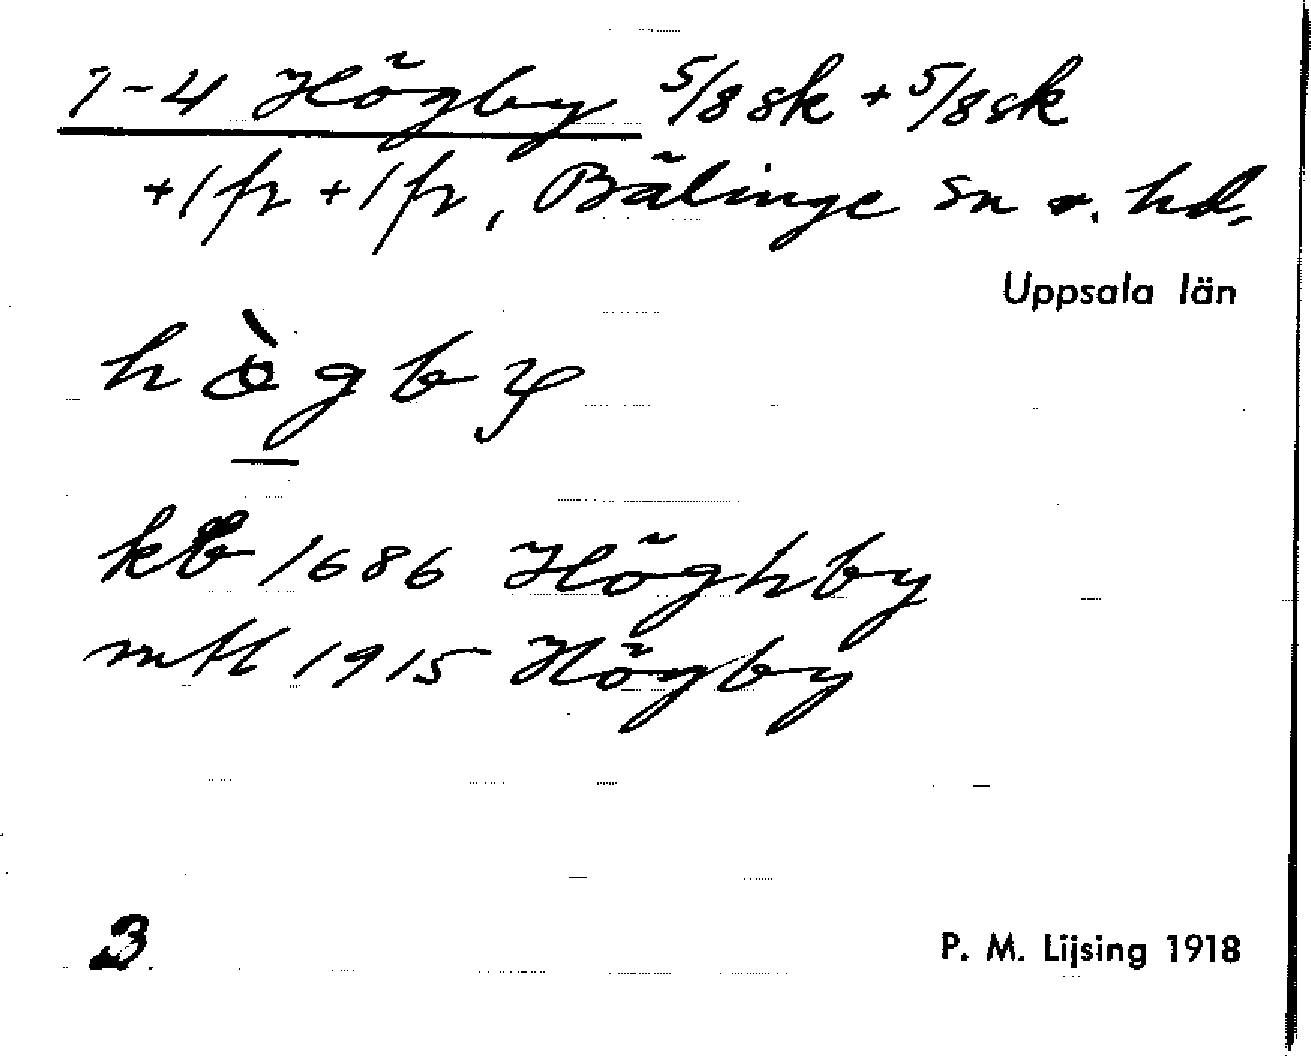 1-4 Högby 5/8 sk + 5/8 sk
+ 1 fr + 1 fr, Bälinge sn o. hd,
Uppsala län
hògby
kb 1686 Höghby
mtl 1915 Högby
3
P. M. Lijsing 1918